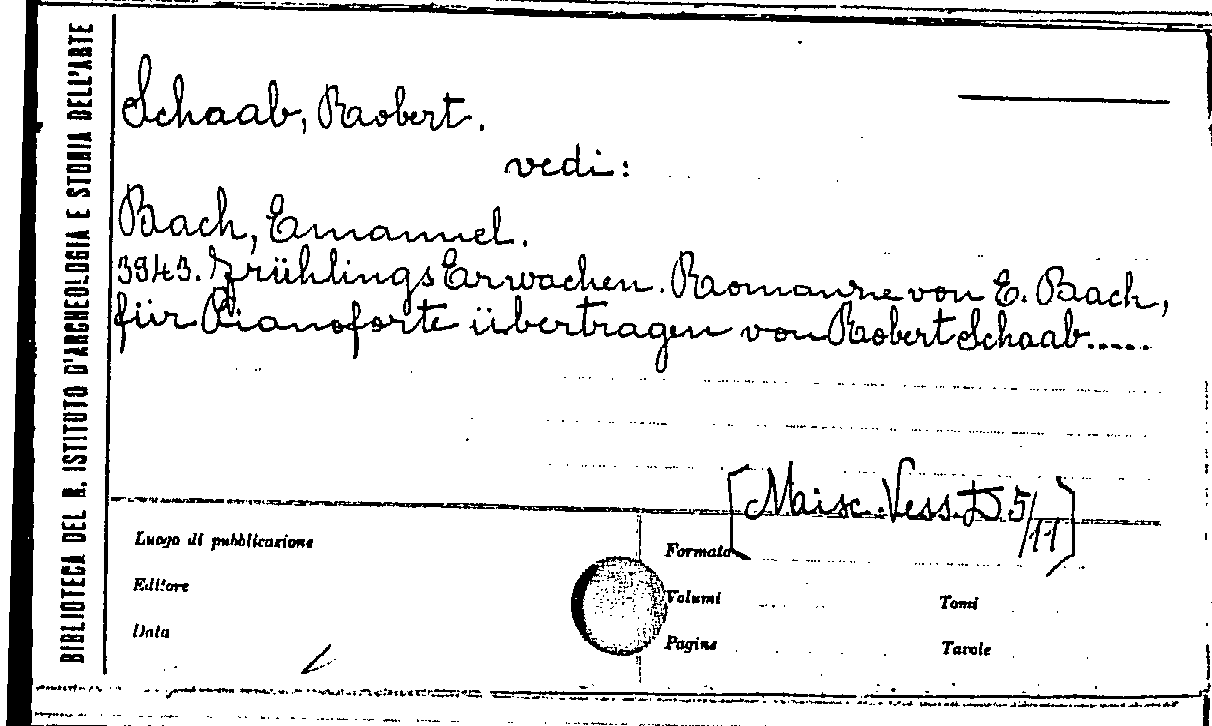 BIBLIOTECA DEL R. ISTITUTO D'ARCHEOLOGIA E STORIA DELL'ARTE
Schaab, Robert.
vedi:
Bach, Emanuel.
3943. Frühlings Erwachen. Romanze von E. Bach,
für Pianoforte übertragen von Robert Schaab.....
[Misc. Vess. D. 5/11]
Luogo di pubblicazione
Editore
Data
Formato
Volumi
Tomi
Pagine
Tavole